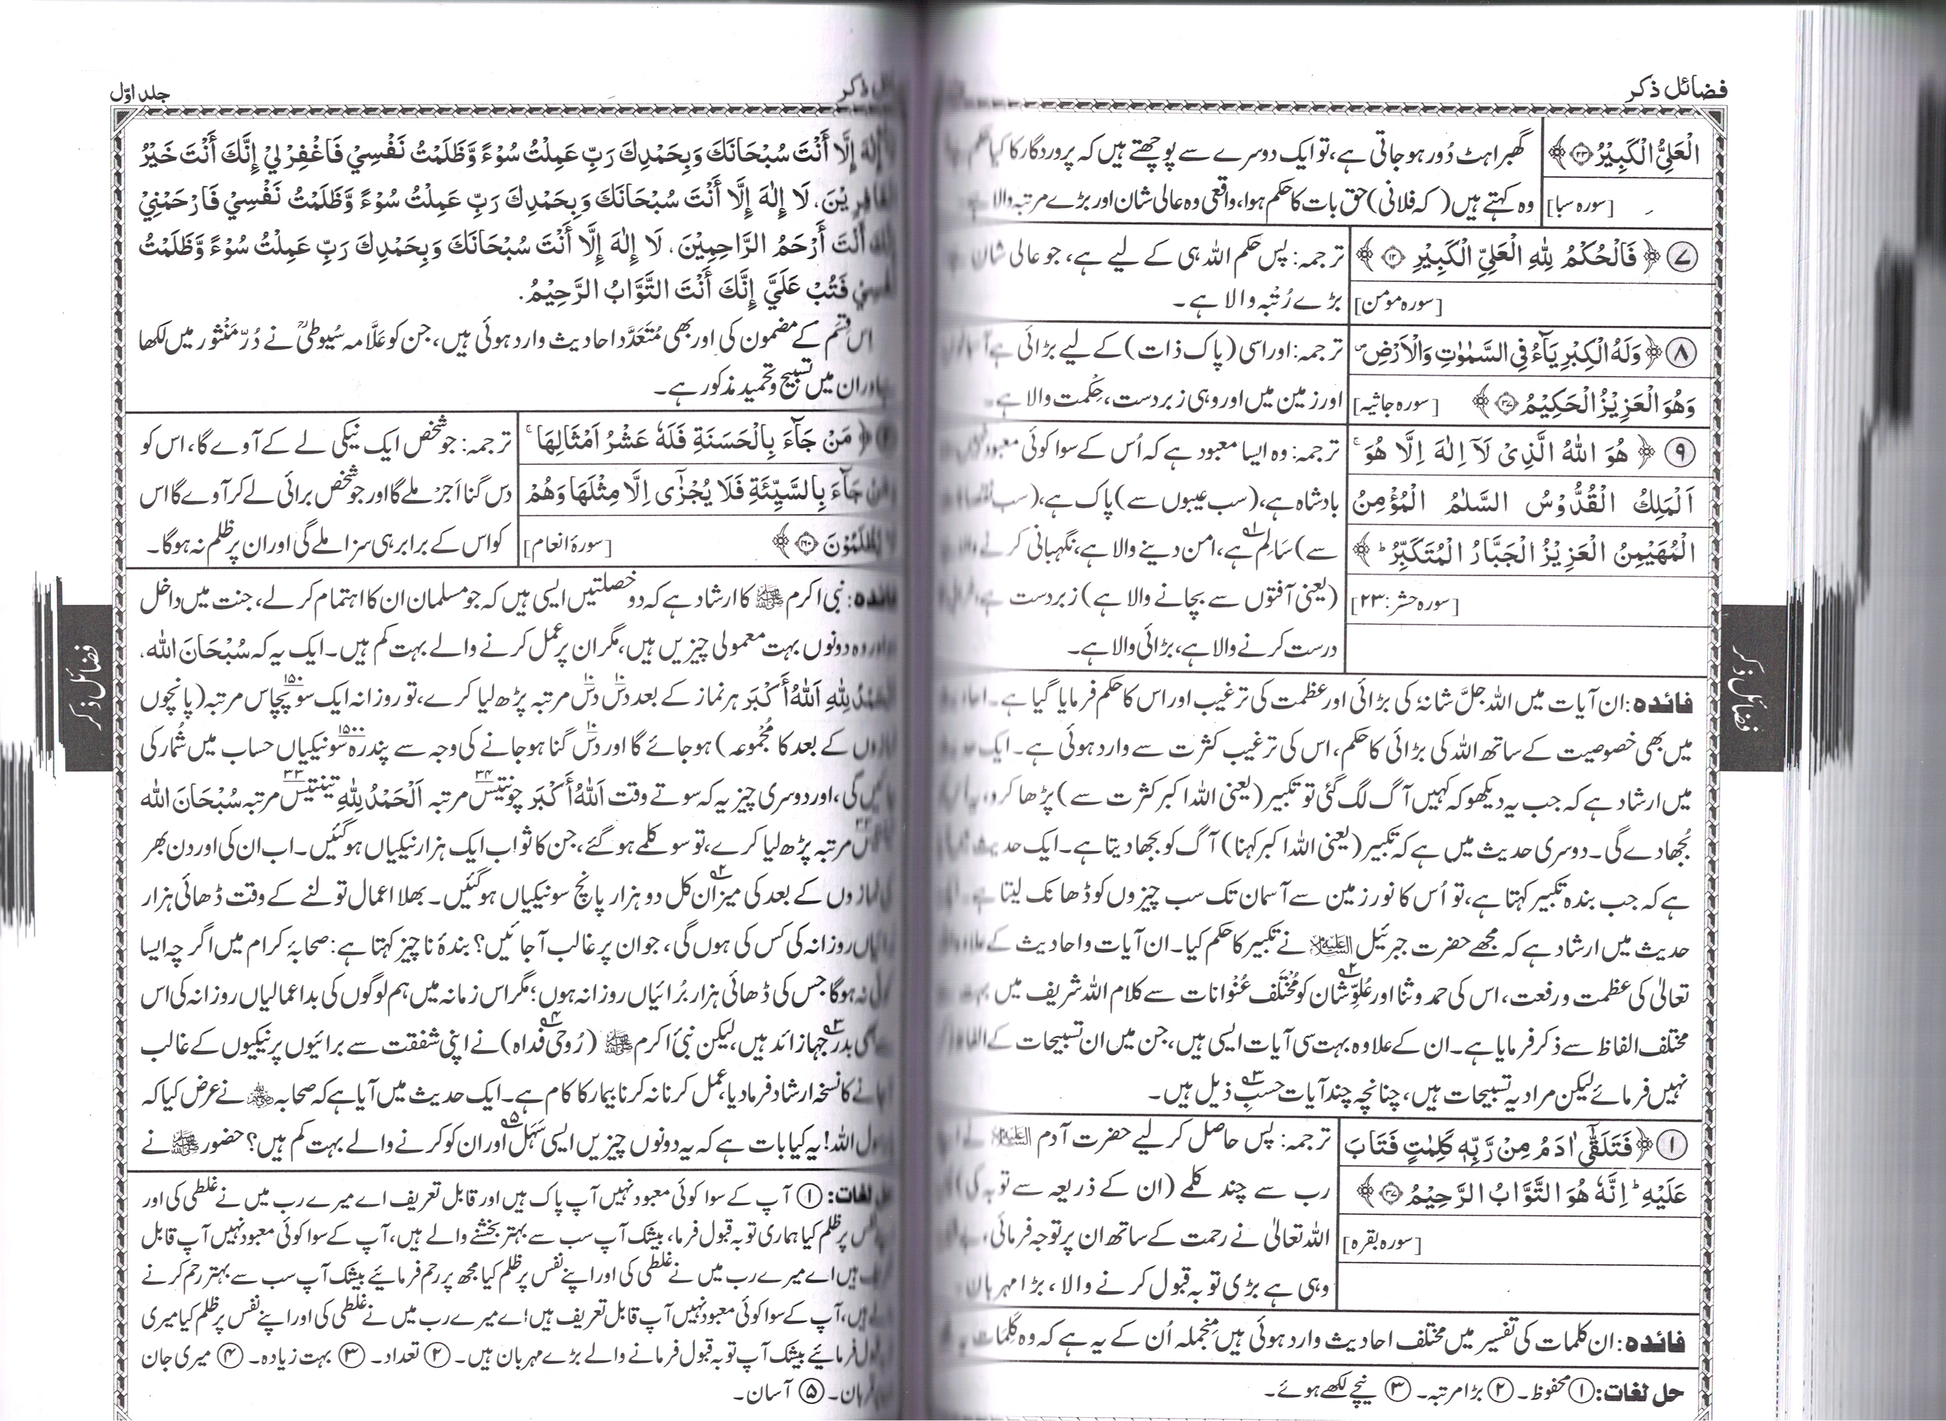 فضائل ذکر
الْعَلِیُّ الْکَبِیْرُ ﴿۲۳﴾
[سورہ سبا]
گھبراہٹ دُور ہوجاتی ہے، تو ایک دوسرے سے پوچھتے ہیں کہ پروردگار کا کیا
وہ کہتے ہیں (کہ فلانی) حق بات کا حکم ہوا، واقعی وہ عالی شان اور بڑے مرتبہ والا ہے
⑦ ﴿فَالْحُکْمُ لِلّٰہِ الْعَلِیِّ الْکَبِیْرِ ﴿۱۲﴾
[سورہ مومن]
ترجمہ: پس حکم اللہ ہی کے لیے ہے، جو عالی شان
بڑے رُتبہ والا ہے۔
⑧ ﴿وَلَہُ الْکِبْرِیَآءُ فِی السَّمٰوٰتِ وَالْاَرْضِ
وَھُوَ الْعَزِیْزُ الْحَکِیْمُ ﴿۳۷﴾ [سورہ جاثیہ]
ترجمہ: اور اسی (پاک ذات) کے لیے بڑائی ہے
اور زمین میں اور وہی زبردست، حِکمت والا ہے۔
⑨ ﴿ھُوَ اللّٰہُ الَّذِیْ لَآ اِلٰہَ اِلَّا ھُوَ ۚ
اَلْمَلِکُ الْقُدُّوْسُ السَّلٰمُ الْمُؤْمِنُ
الْمُھَیْمِنُ الْعَزِیْزُ الْجَبَّارُ الْمُتَکَبِّرُ ؕ﴾
[سورہ حشر: ۲۳]
ترجمہ: وہ ایسا معبود ہے کہ اُس کے سوا کوئی معبود
بادشاہ ہے، (سب عیبوں سے) پاک ہے، (سب
سے) سَالِم ہے، امن دینے والا ہے، نگہبانی کرنے
(یعنی آفتوں سے بچانے والا ہے) زبردست ہے
درست کرنے والا ہے، بڑائی والا ہے۔
فائدہ: ان آیات میں اللہ جلَّ شانہٗ کی بڑائی اور عظمت کی ترغیب اور اس کا حکم فرمایا گیا ہے۔
میں بھی خصوصیت کے ساتھ اللہ کی بڑائی کا حکم، اس کی ترغیب کثرت سے وارد ہوئی ہے۔ ایک
میں ارشاد ہے کہ جب یہ دیکھو کہ کہیں آگ لگ گئی تو تکبیر (یعنی اللہ اکبر کثرت سے) پڑھا کرو،
بُجھا دے گی۔ دوسری حدیث میں ہے کہ تکبیر (یعنی اللہ اکبر کہنا) آگ کو بجھا دیتا ہے۔ ایک
ہے کہ جب بندہ تکبیر کہتا ہے، تو اُس کا نور زمین سے آسمان تک سب چیزوں کو ڈھانک لیتا ہے
حدیث میں ارشاد ہے کہ مجھے حضرت جبرئیل علیہ السلام نے تکبیر کا حکم کیا۔ ان آیات و احادیث کے
تعالیٰ کی عظمت و رفعت، اس کی حمد و ثنا اور عُلوِّ شان کو مُختَلَف عُنوانات سے کلام اللہ شریف میں
مختلف الفاظ سے ذکر فرمایا ہے۔ ان کے علاوہ بہت سی آیات ایسی ہیں، جن میں ان تسبیحات کے
نہیں فرمائے لیکن مراد یہ تسبیحات ہیں، چنانچہ چند آیات حسبِ ذیل ہیں۔
① ﴿فَتَلَقّٰٓی اٰدَمُ مِنْ رَّبِّہٖ کَلِمٰتٍ فَتَابَ
عَلَیْہِ ؕ اِنَّہٗ ھُوَ التَّوَّابُ الرَّحِیْمُ ﴿۳۷﴾
[سورہ بقرہ]
ترجمہ: پس حاصل کر لیے حضرت آدم علیہ السلام نے
رب سے چند کلمے (ان کے ذریعہ سے توبہ کی)
اللہ تعالیٰ نے رحمت کے ساتھ ان پر توجہ فرمائی،
وہی ہے بڑی توبہ قبول کرنے والا، بڑا مہربان
فائدہ: ان کلمات کی تفسیر میں مختلف احادیث وارد ہوئی ہیں مِنجملہ اُن کے یہ ہے کہ وہ کلمات
حل لغات: ① محفوظ۔ ② بڑا مرتبہ۔ ③ نیچے لکھے ہوئے۔
فضائل ذکر
ذکر
جلد اوّل
إِلٰہَ إِلَّا أَنْتَ سُبْحَانَكَ وَبِحَمْدِكَ رَبِّ عَمِلْتُ سُوْءً وَّظَلَمْتُ نَفْسِيْ فَاغْفِرْ لِيْ إِنَّكَ أَنْتَ خَيْرُ
الْغَافِرِيْنَ، لَا إِلٰہَ إِلَّا أَنْتَ سُبْحَانَكَ وَبِحَمْدِكَ رَبِّ عَمِلْتُ سُوْءً وَّظَلَمْتُ نَفْسِيْ فَارْحَمْنِيْ
أَنْتَ أَرْحَمُ الرَّاحِمِيْنَ، لَا إِلٰہَ إِلَّا أَنْتَ سُبْحَانَكَ وَبِحَمْدِكَ رَبِّ عَمِلْتُ سُوْءً وَّظَلَمْتُ
نَفْسِيْ فَتُبْ عَلَيَّ إِنَّكَ أَنْتَ التَّوَّابُ الرَّحِيْمُ.
اس قسم کے مضمون کی اور بھی مُتَعَدَّد احادیث وارد ہوئی ہیں، جن کو علَّامہ سُیوطیؒ نے دُرِّ مَنثور میں لکھا
اور ان میں تسبیح و تحمید مذکور ہے۔
﴿مَنْ جَآءَ بِالْحَسَنَۃِ فَلَہٗ عَشْرُ اَمْثَالِھَا ۚ
جَآءَ بِالسَّیِّئَۃِ فَلَا یُجْزٰٓی اِلَّا مِثْلَھَا وَھُمْ
لَا یُظْلَمُوْنَ ﴿۱۶۰﴾ [سورۂ انعام]
ترجمہ: جو شخص ایک نیکی لے کے آوے گا، اس کو
دس گنا اَجر ملے گا اور جو شخص برائی لے کر آوے گا اس
کو اس کے برابر ہی سزا ملے گی اور ان پر ظلم نہ ہوگا۔
فائدہ: نبی اکرم ﷺ کا ارشاد ہے کہ دو خصلتیں ایسی ہیں کہ جو مسلمان ان کا اہتمام کر لے، جنت میں داخل
اور وہ دونوں بہت معمولی چیزیں ہیں، مگر ان پر عمل کرنے والے بہت کم ہیں۔ ایک یہ کہ سُبْحَانَ اللّٰہ،
اَلْحَمْدُ لِلّٰہِ اَللّٰہُ أَکْبَر ہر نماز کے بعد دس۱۰ دس۱۰ مرتبہ پڑھ لیا کرے، تو روزانہ ایک سو پچاس۱۵۰ مرتبہ (پانچوں
نمازوں کے بعد کا مجموعہ) ہوجائے گا اور دس۱۰ گنا ہوجانے کی وجہ سے پندرہ سو۱۵۰۰ نیکیاں حساب میں شُمار کی
گی، اور دوسری چیز یہ کہ سوتے وقت اَللّٰہُ أَکْبَر چونتیس۳۴ مرتبہ اَلْحَمْدُ لِلّٰہِ تینتیس۳۳ مرتبہ سُبْحَانَ اللّٰہ
۳۳ مرتبہ پڑھ لیا کرے، تو سو کلمے ہوگئے، جن کا ثواب ایک ہزار نیکیاں ہوگئیں۔ اب ان کی اور دن بھر
نمازوں کے بعد کی میزان کل دو ہزار پانچ سو نیکیاں ہوگئیں۔ بھلا اعمال تولنے کے وقت ڈھائی ہزار
روزانہ کی کس کی ہوں گی، جو ان پر غالب آجائیں؟ بندۂ ناچیز کہتا ہے: صحابۂ کرام میں اگرچہ ایسا
نہ ہوگا جس کی ڈھائی ہزار بُرائیاں روزانہ ہوں؛ مگر اس زمانہ میں ہم لوگوں کی بداعمالیاں روزانہ کی اس
بھی بدرجہا زائد ہیں، لیکن نبیٔ اکرم ﷺ (رُوحِی فداہ) نے اپنی شفقت سے برائیوں پر نیکیوں کے غالب
کا نسخہ ارشاد فرما دیا، عمل کرنا نہ کرنا بیمار کا کام ہے۔ ایک حدیث میں آیا ہے کہ صحابہ رضی اللہ عنہم نے عرض کیا کہ
اللہ! یہ کیا بات ہے کہ یہ دونوں چیزیں ایسی سَہل اور ان کو کرنے والے بہت کم ہیں؟ حضور ﷺ نے
حل لغات: ① آپ کے سوا کوئی معبود نہیں آپ پاک ہیں اور قابل تعریف اے میرے رب میں نے غلطی کی اور
پر ظلم کیا ہماری توبہ قبول فرما، بیشک آپ سب سے بہتر بخشنے والے ہیں، آپ کے سوا کوئی معبود نہیں آپ قابل
ہیں اے میرے رب میں نے غلطی کی اور اپنے نفس پر ظلم کیا مجھ پر رحم فرمائیے بیشک آپ سب سے بہتر رحم کرنے
ہیں، آپ کے سوا کوئی معبود نہیں آپ قابل تعریف ہیں اے میرے رب میں نے غلطی کی اور اپنے نفس پر ظلم کیا میری
فرمائیے بیشک آپ توبہ قبول فرمانے والے بڑے مہربان ہیں۔ ② تعداد۔ ③ بہت زیادہ۔ ④ میری جان
⑤ آسان۔
فضائل ذکر